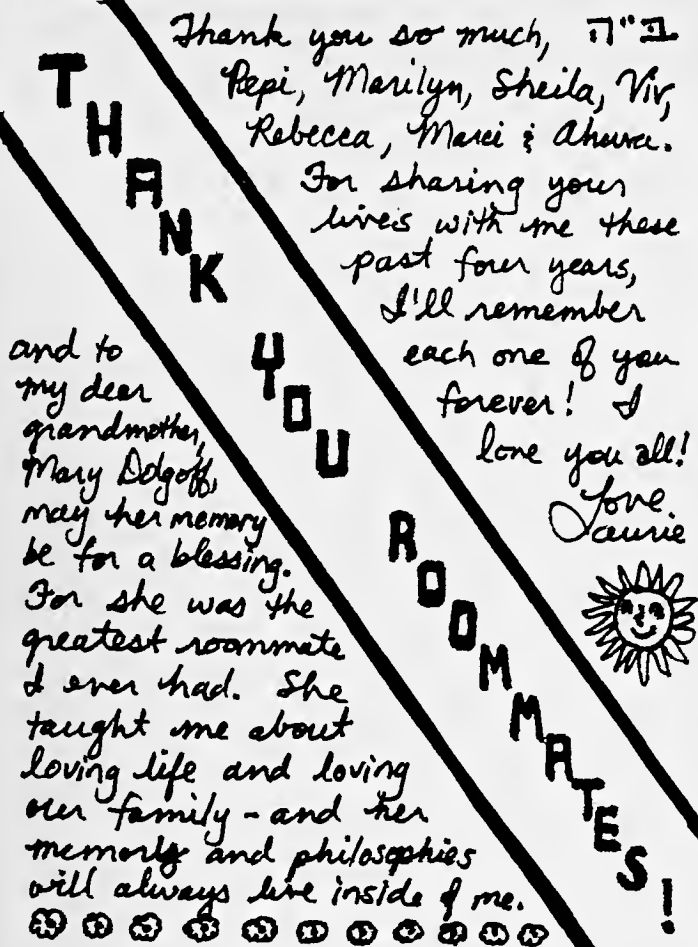 Thank you so much, ב"ה
Pepi, Marilyn, Sheila, Viv,
Rebecca, Marci & Ahuva.
For sharing your
lives with me these
past four years,
I'll remember
each one of you
forever! I
love you all!
Love
Laurie
THANK YOU ROOMMATES!
and to
my dear
grandmother,
Mary Dolgoff,
may her memory
be for a blessing.
For she was the
greatest roommate
I ever had. She
taught me about
loving life and loving
our family - and her
memory and philosophies
will always live inside of me.